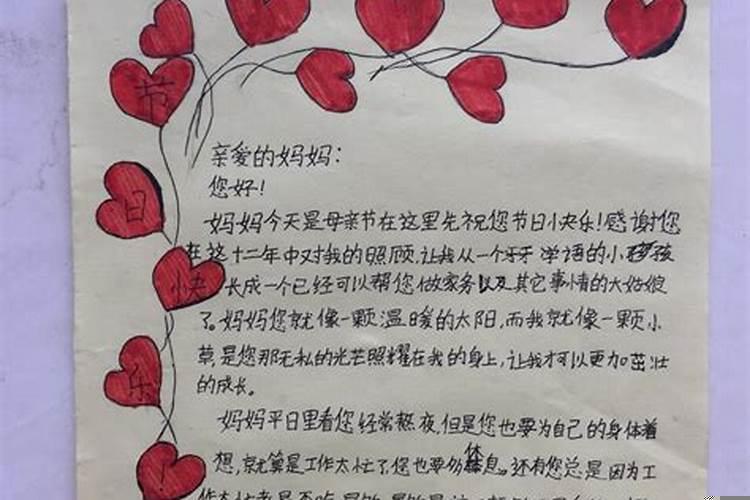 节
日
快
乐
!
亲爱的妈妈:
您好!
妈妈今天是母亲节在这里先祝您节日快乐!感谢您
在这十二年中对我的照顾,让我从一个牙牙学语的小孩
长成一个已经可以帮您做家务以及其它事情的大姑娘
了。妈妈您就像一颗温暖的太阳,而我就像一颗小
草,是您那无私的光芒照耀在我的身上,让我才可以更加茁壮
的成长。
妈妈平日里看您经常熬夜,但是您也要为自己的身体着
想,就算是工作太忙了,您也要休息。还有您总是因为工